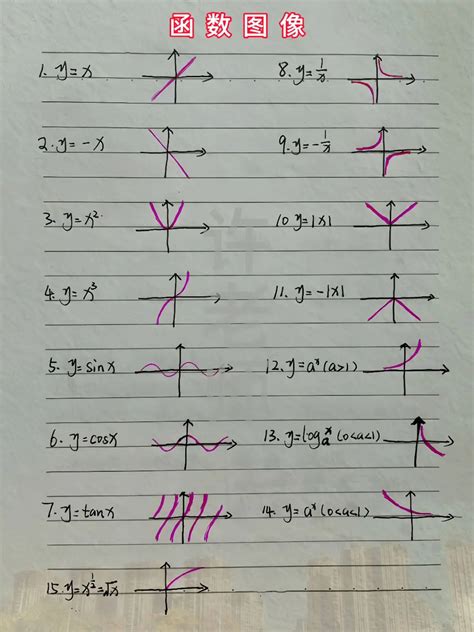 函数图像
1. y=x
8. y=1/x
2. y=-x
9. y=-1/x
3. y=x²
10 y=|x|
4. y=x³
11. y=-|x|
5. y=sinx
12. y=aˣ(a>1)
6. y=cosx
13. y=logₐx (0<a<1)
7. y=tanx
14. y=aˣ(0<a<1)
15. y=x^½=√x